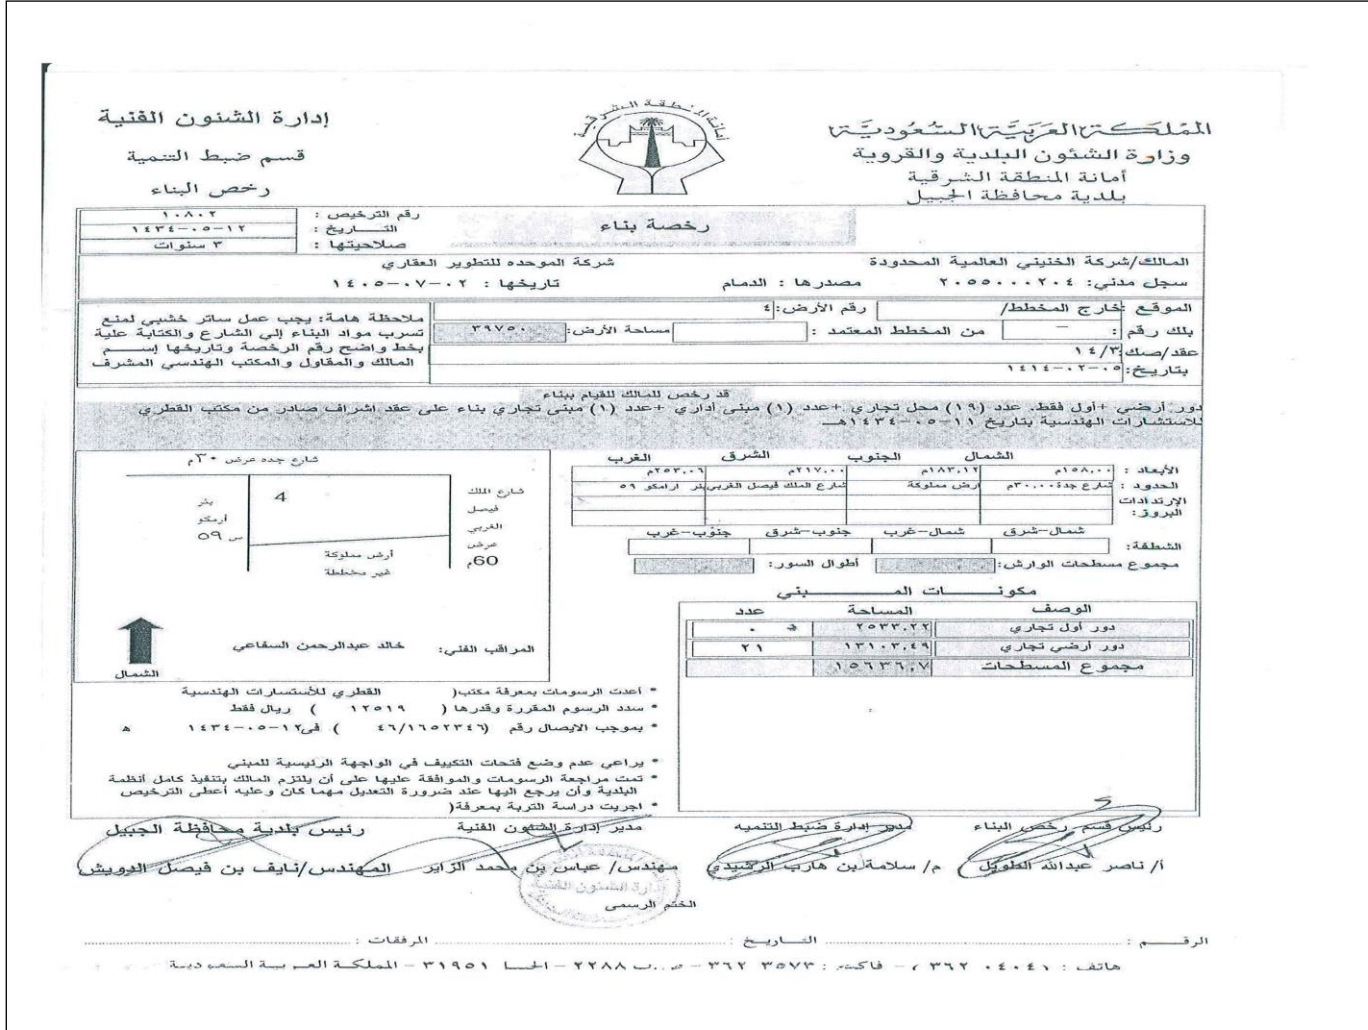 المملكة العربية السعودية
وزارة الشئون البلدية والقروية
أمانة المنطقة الشرقية
بلدية محافظة الجبيل
أمانة المنطقة الشرقية
إدارة الشئون الفنية
قسم ضبط التنمية
رخص البناء
رخصة بناء
رقم الترخيص : ١٠٨٠٢
التـــاريخ : ١٤٣٤-٠٥-١٢
صلاحيتها : ٣ سنوات
المالك/شركة الخنيني العالمية المحدودة شركة الموحده للتطوير العقاري
سجل مدني: ٢٠٥٥٠٠٠٢٠٤ مصدرها : الدمام تاريخها : ٠٢-٠٧-١٤٠٥
الموقع :خارج المخطط/ رقم الأرض: ٤
بلك رقم : – من المخطط المعتمد : مساحة الأرض: ٣٩٧٥٠
عقد/صك: ١٤/٣
بتاريخ: ٠٥-٠٢-١٤١٤
ملاحظة هامة: يجب عمل ساتر خشبي لمنع
تسرب مواد البناء إلي الشارع والكتابة علية
بخط واضح رقم الرخصة وتاريخها إســم
المالك والمقاول والمكتب الهندسي المشرف
قد رخص للمالك للقيام ببناء
دور أرضي +أول فقط. عدد (١٩) محل تجاري +عدد (١) مبنى أداري +عدد (١) مبنى تجاري بناء على عقد اشراف صادر من مكتب القطري
للاستشارات الهندسية بتاريخ ١١-٠٥-١٤٣٤هـ
الشمال الجنوب الشرق الغرب
الأبعاد : ١٥٨,٠٠م ١٨٣,١٢م ٢١٧,٠٠م ٢٥٣,٠٦م
الحدود : شارع جدة ٣٠,٠٠م ارض مملوكة شارع الملك فيصل الغربي بئر ارامكو ٥٩
الإرتدادات
البروز:
شمال-شرق شمال-غرب جنوب-شرق جنوب-غرب
الشطفة:
مجموع مسطحات الوارش: أطوال السور:
شارع جده عرض ٣٠م
4
شارع الملك
فيصل
الغربي
عرض
60م
بئر
أرمكو
س 59
أرض مملوكة
غير مخططة
المراقب الفني: خالد عبدالرحمن السفاعي
الشمال
مكونـــــات المـــــبني
الوصف المساحة عدد
دور أول تجاري ٢٥٣٣,٢٢ ٠
دور أرضي تجاري ١٣١٠٣,٤٩ ٢١
مجموع المسطحات ١٥٦٣٦,٧
* أعدت الرسومات بمعرفة مكتب( القطري للأستسارات الهندسية
* سدد الرسوم المقررة وقدرها ( ١٢٥١٩ ) ريال فقط
* بموجب الايصال رقم (٤٦/١٦٥٢٣٤٦ ) في١٢-٠٥-١٤٣٤ ه
* يراعي عدم وضع فتحات التكييف في الواجهة الرئيسية للمبني
* تمت مراجعة الرسومات والموافقة عليها على أن يلتزم المالك بتنفيذ كامل أنظمة
البلدية وأن يرجع اليها عند ضرورة التعديل مهما كان وعليه أعطى الترخيص
* اجريت دراسة التربة بمعرفة(
رئيس قسم رخص البناء مدير إدارة ضبط التنميه مدير إدارة الشئون الفنية رئيس بلدية محافظة الجبيل
أ/ ناصر عبدالله الطويل م/ سلامة بن هارب الرشيدي مهندس/ عباس بن محمد الزاير المهندس/نايف بن فيصل الدويش
إدارة الشئون الفنية
الختم الرسمى
الرقــم : التــاريـخ : المرفقات :
هاتف : ٣٦٢ ٠٤٠٤١ – فاكس : ٣٥٧٣ ٣٦٢ – ص.ب ٢٢٨٨ – ٣١٩٥١ – المملكة العربية السعودية